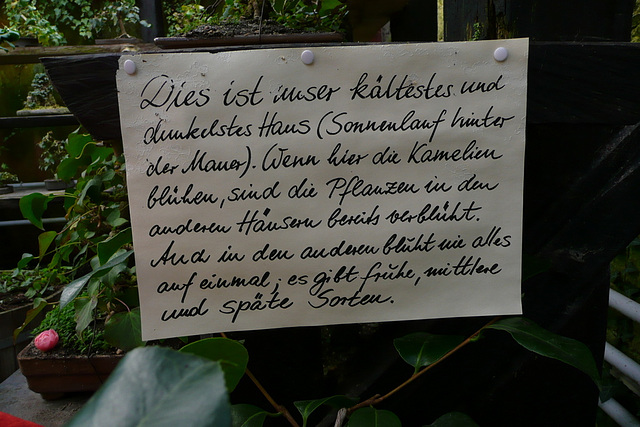 Dies ist unser kältestes und
dunkelstes Haus (Sonnenlauf hinter
der Mauer). Wenn hier die Kamelien
blühen, sind die Pflanzen in den
anderen Häusern bereits verblüht.
Und in den anderen blüht nie alles
auf einmal; es gibt frühe, mittlere
und späte Sorten.